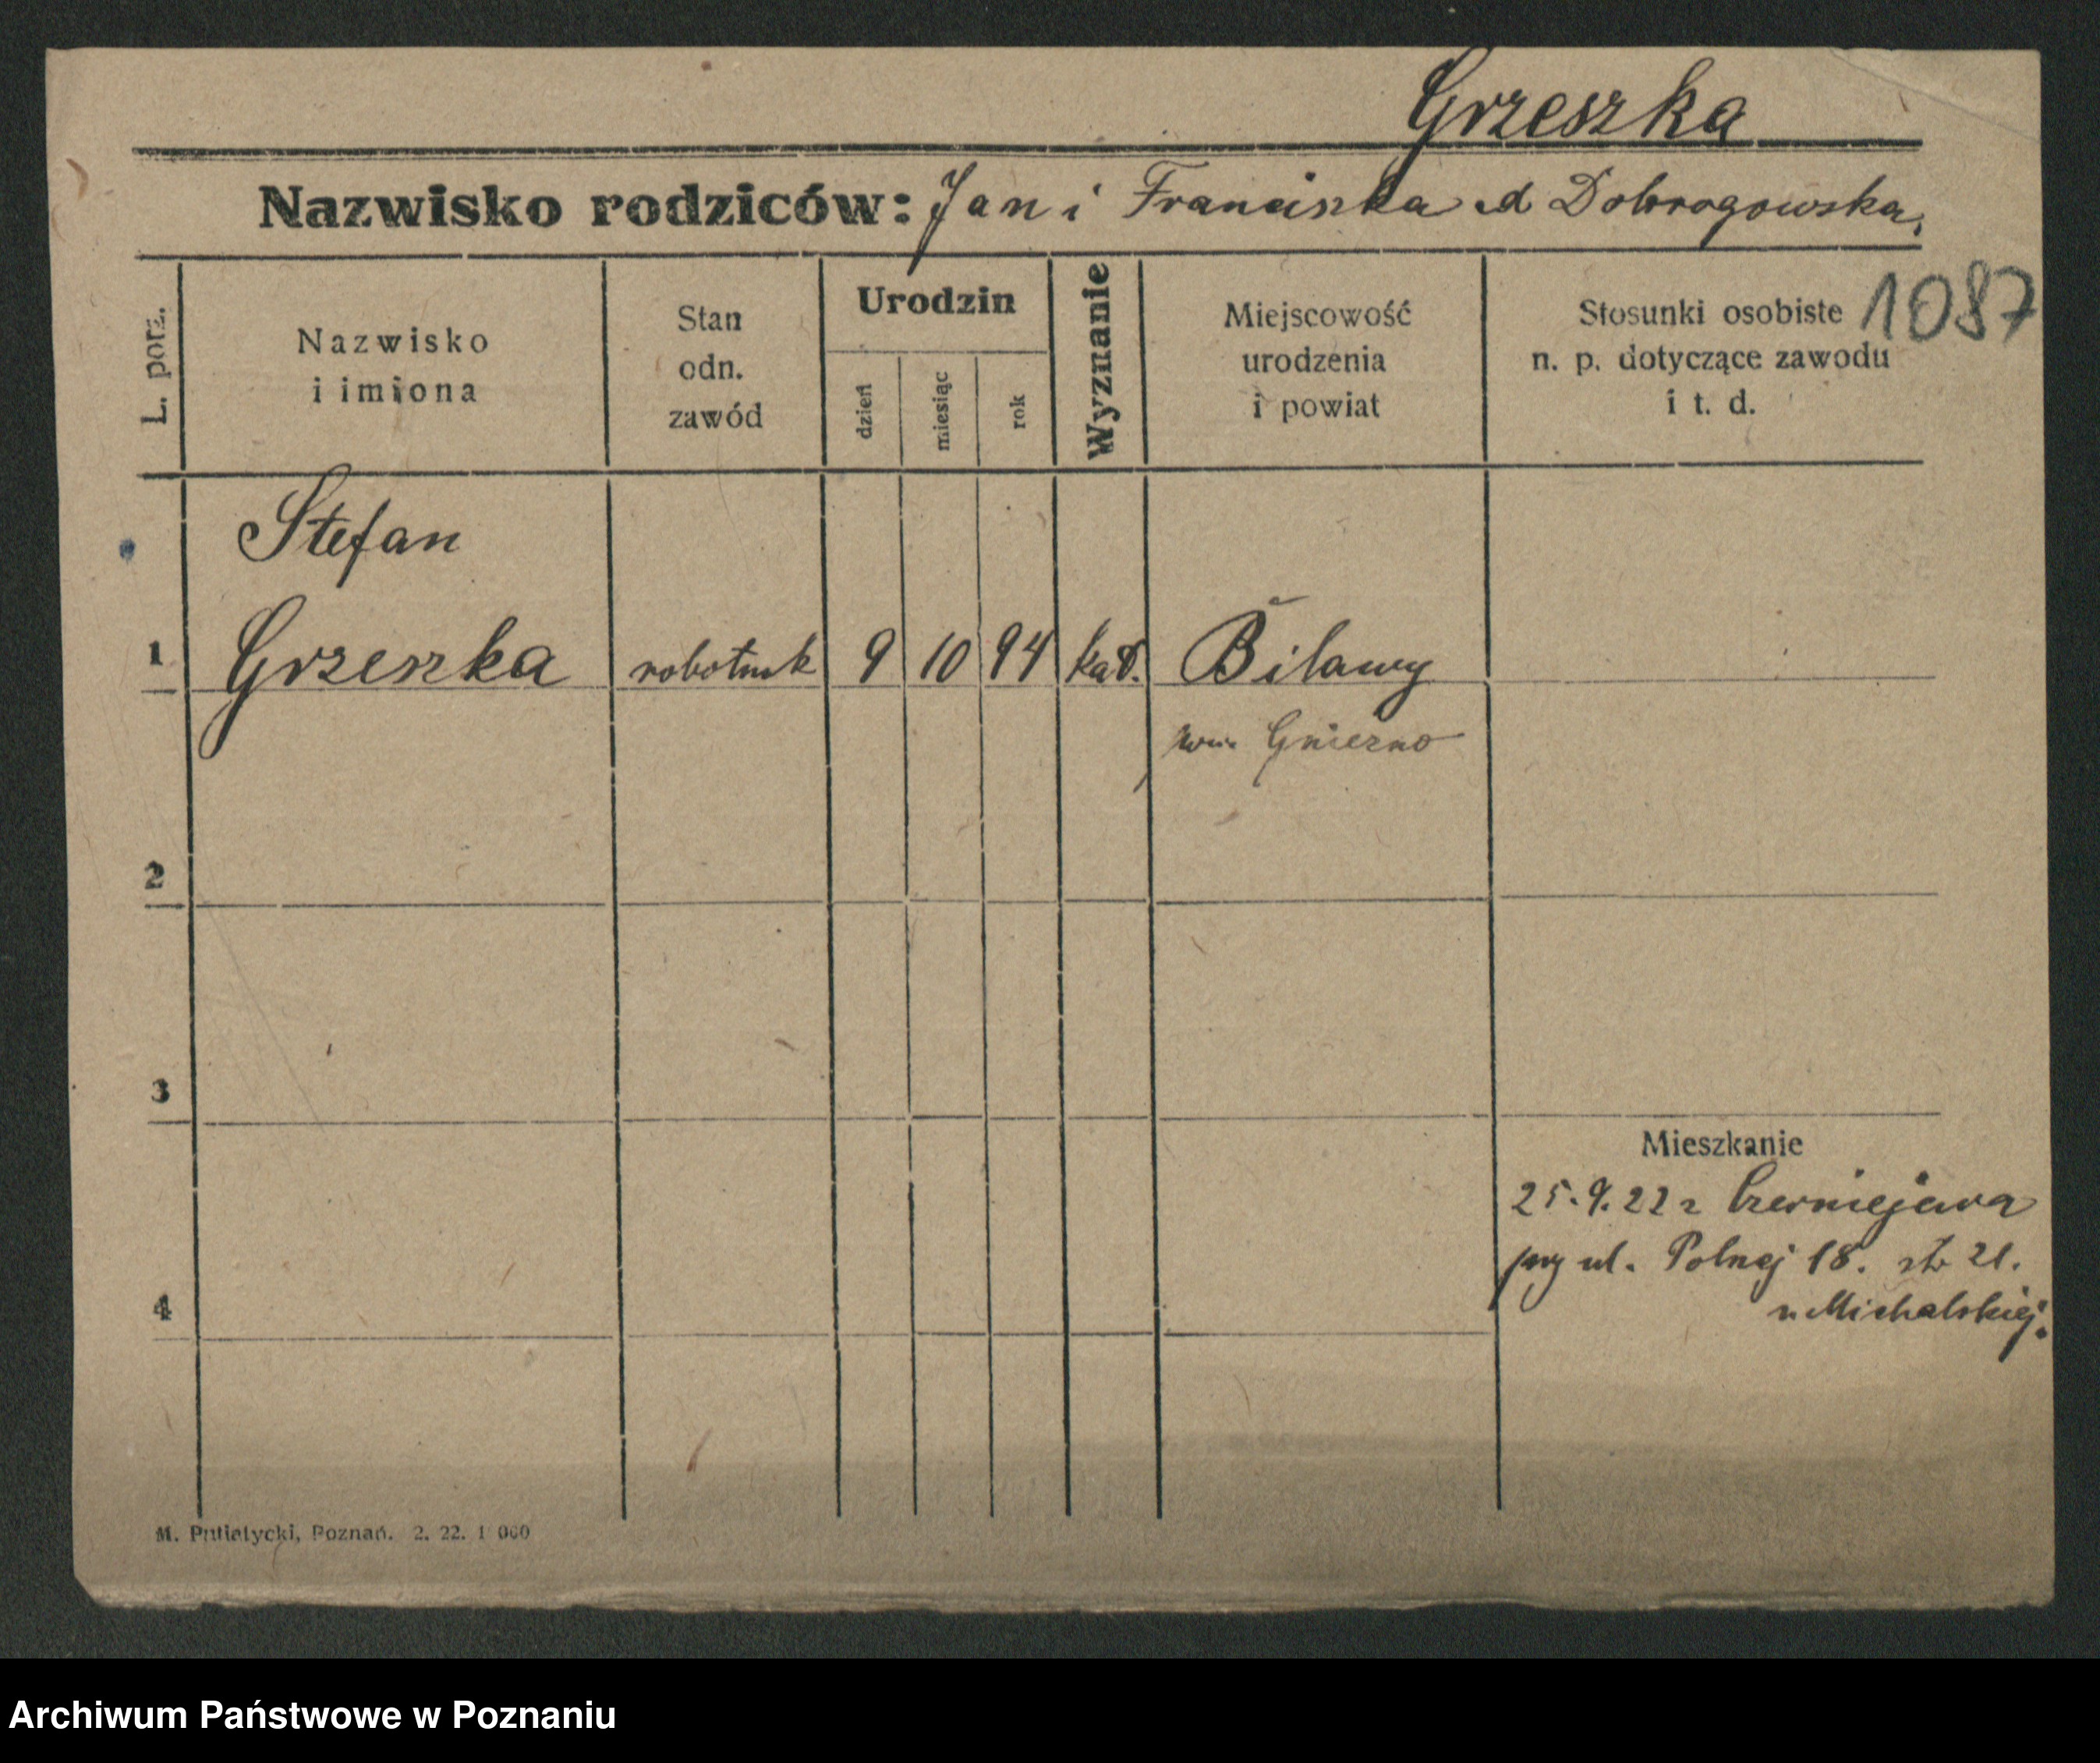 Grzeszka
Nazwisko rodziców: Jan i Franciszka d Dobrogowska,
1087
L. porz.
Nazwisko
i imiona
Stan
odn.
zawód
Urodzin
dzień
miesiąc
rok
Wyznanie
Miejscowość
urodzenia
i powiat
Stosunki osobiste
n. p. dotyczące zawodu
i t. d.
Stefan
1 Grzeszka robotnik 9 10 94 kat. Bilawy
Gniezno
2
3
Mieszkanie
25.9.22 z Czerniejewa
przy ul. Polnej 18. 21.
u Michalskiej.
4
M. Putiatycki, Poznań. 2. 22. 1 000
Archiwum Państwowe w Poznaniu